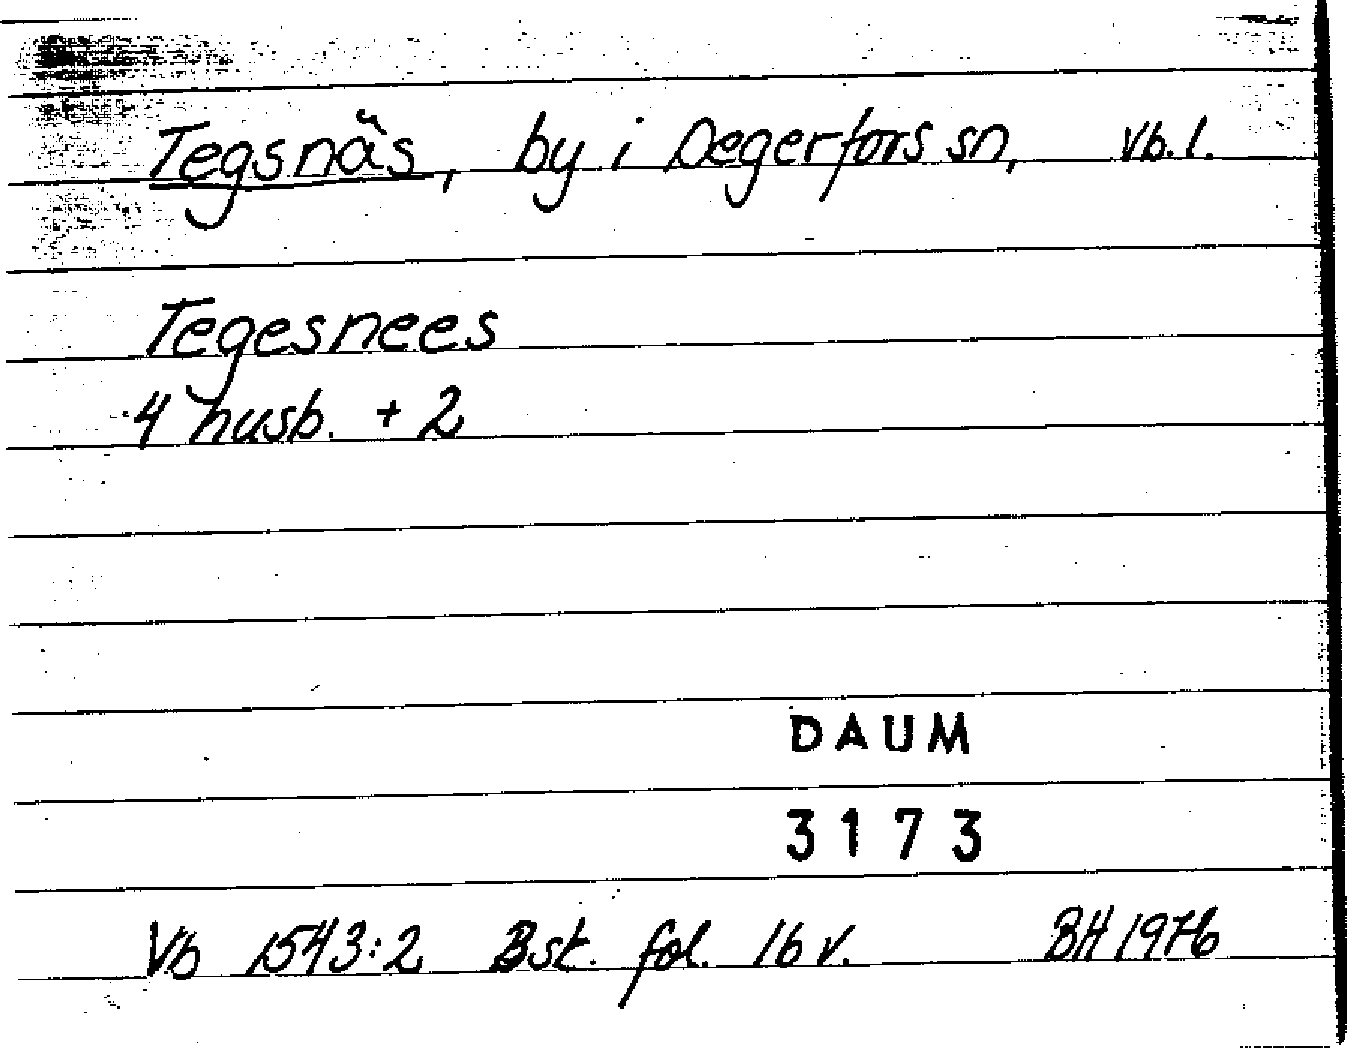 Tegsnäs, by i Degerfors sn, Vb. l.
Tegesnees
4 husb. + 2
DAUM
3173
Vb 1543:2 Bsk. fol. 16 v. BH 1976